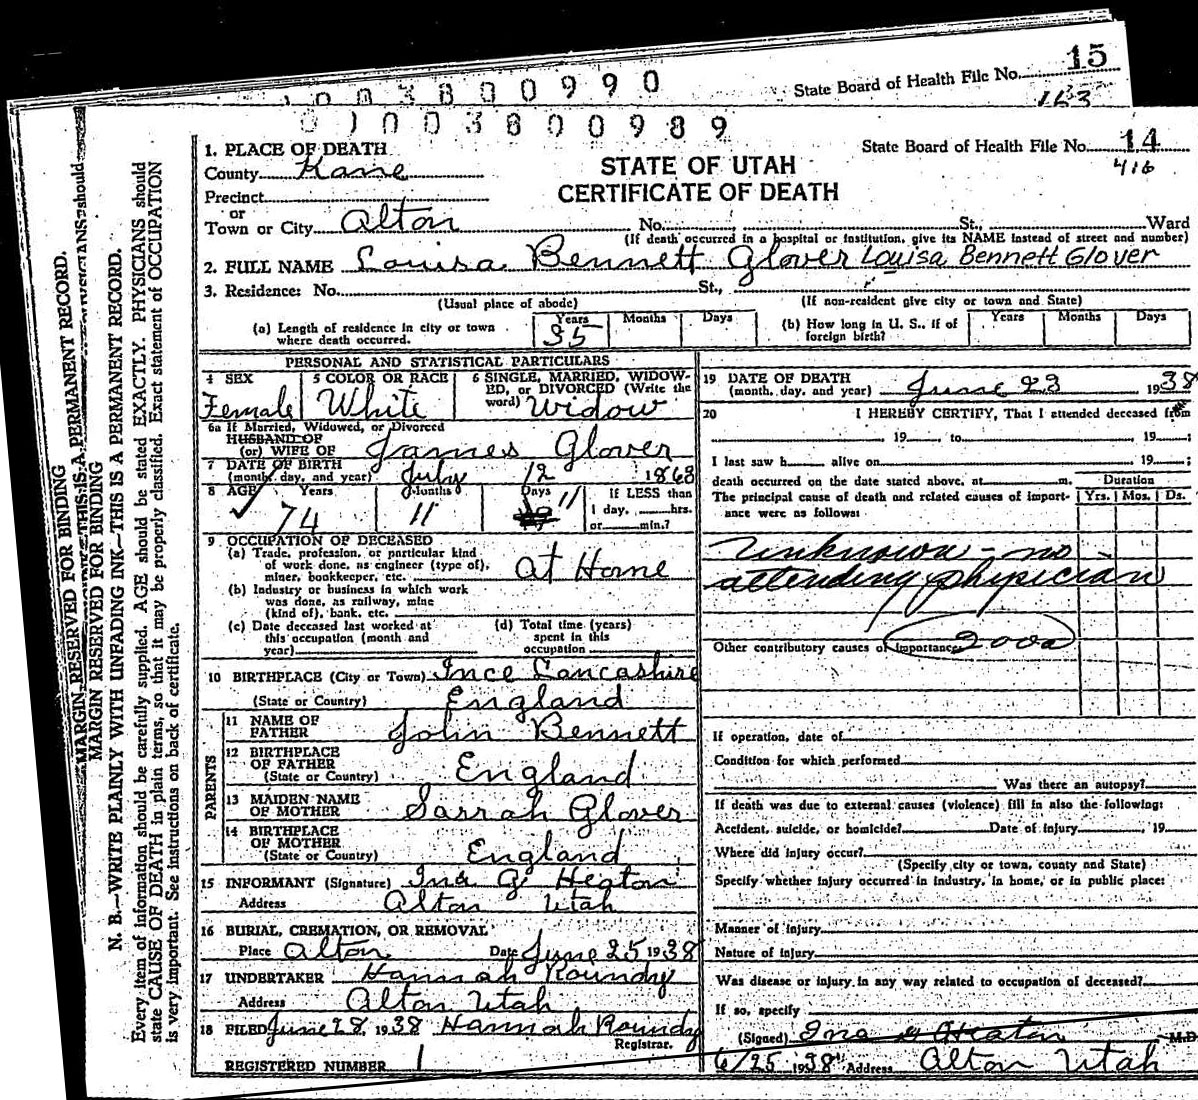 15
State Board of Health File No.
1003800990
163
01003800989
State Board of Health File No. 14
416
1. PLACE OF DEATH
STATE OF UTAH
CERTIFICATE OF DEATH
County Kane
Precinct
or
Town or City Alton No. St., Ward
(If death occurred in a hospital or institution, give its NAME instead of street and number)
2. FULL NAME Louisa Bennett Glover Louisa Bennett Glover
3. Residence: No. St.,
(Usual place of abode) (If non-resident give city or town and State)
(a) Length of residence in city or town where death occurred. Years 35 Months Days
(b) How long in U. S., if of foreign birth? Years Months Days
PERSONAL AND STATISTICAL PARTICULARS
4 SEX Female
5 COLOR OR RACE White
6 SINGLE, MARRIED, WIDOWED, or DIVORCED (Write the word) Widow
6a If Married, Widowed, or Divorced
HUSBAND OF
(or) WIFE OF James Glover
7 DATE OF BIRTH
(month, day, and year) July 12 1863
8 AGE Years 74 Months 11 Days 11 If LESS than
1 day, hrs.
or min.?
9 OCCUPATION OF DECEASED
(a) Trade, profession, or particular kind
of work done, as engineer (type of),
miner, bookkeeper, etc. at Home
(b) Industry or business in which work
was done, as railway, mine
(kind of), bank, etc.
(c) Date deceased last worked at
this occupation (month and
year)
(d) Total time (years)
spent in this
occupation
10 BIRTHPLACE (City or Town) Ince Lancashire
(State or Country) England
PARENTS
11 NAME OF
FATHER John Bennett
12 BIRTHPLACE
OF FATHER
(State or Country) England
13 MAIDEN NAME
OF MOTHER Sarrah Glover
14 BIRTHPLACE
OF MOTHER
(State or Country) England
15 INFORMANT (Signature) Ina G Heaton
Address Alton Utah
16 BURIAL, CREMATION, OR REMOVAL
Place Alton Date June 25 1938
17 UNDERTAKER Hannah Roundy
Address Alton Utah
18 FILED June 28, 1938 Hannah Roundy
Registrar.
REGISTERED NUMBER 1
19 DATE OF DEATH
(month, day, and year) June 23 1938
20 I HEREBY CERTIFY, That I attended deceased from
, 19 , to 19 ;
I last saw h alive on , 19 ;
death occurred on the date stated above, at m.
Duration
The principal cause of death and related causes of importance were as follows: Yrs. Mos. Ds.
Unknown - no
attending physician
200a
Other contributory causes of importance
If operation, date of
Condition for which performed
Was there an autopsy?
If death was due to external causes (violence) fill in also the following:
Accident, suicide, or homicide? Date of injury , 19
Where did injury occur?
(Specify city or town, county and State)
Specify whether injury occurred in industry, in home, or in public place:
Manner of injury
Nature of injury
Was disease or injury in any way related to occupation of deceased?
If so, specify
(Signed) Ina G Heaton M.D.
6/25 1938 Address Alton Utah
MARGIN RESERVED FOR BINDING
MARGIN RESERVED FOR BINDING
N. B.—WRITE PLAINLY WITH UNFADING INK—THIS IS A PERMANENT RECORD.
Every item of information should be carefully supplied. AGE should be stated EXACTLY. PHYSICIANS should
state CAUSE OF DEATH in plain terms, so that it may be properly classified. Exact statement of OCCUPATION
is very important. See instructions on back of certificate.